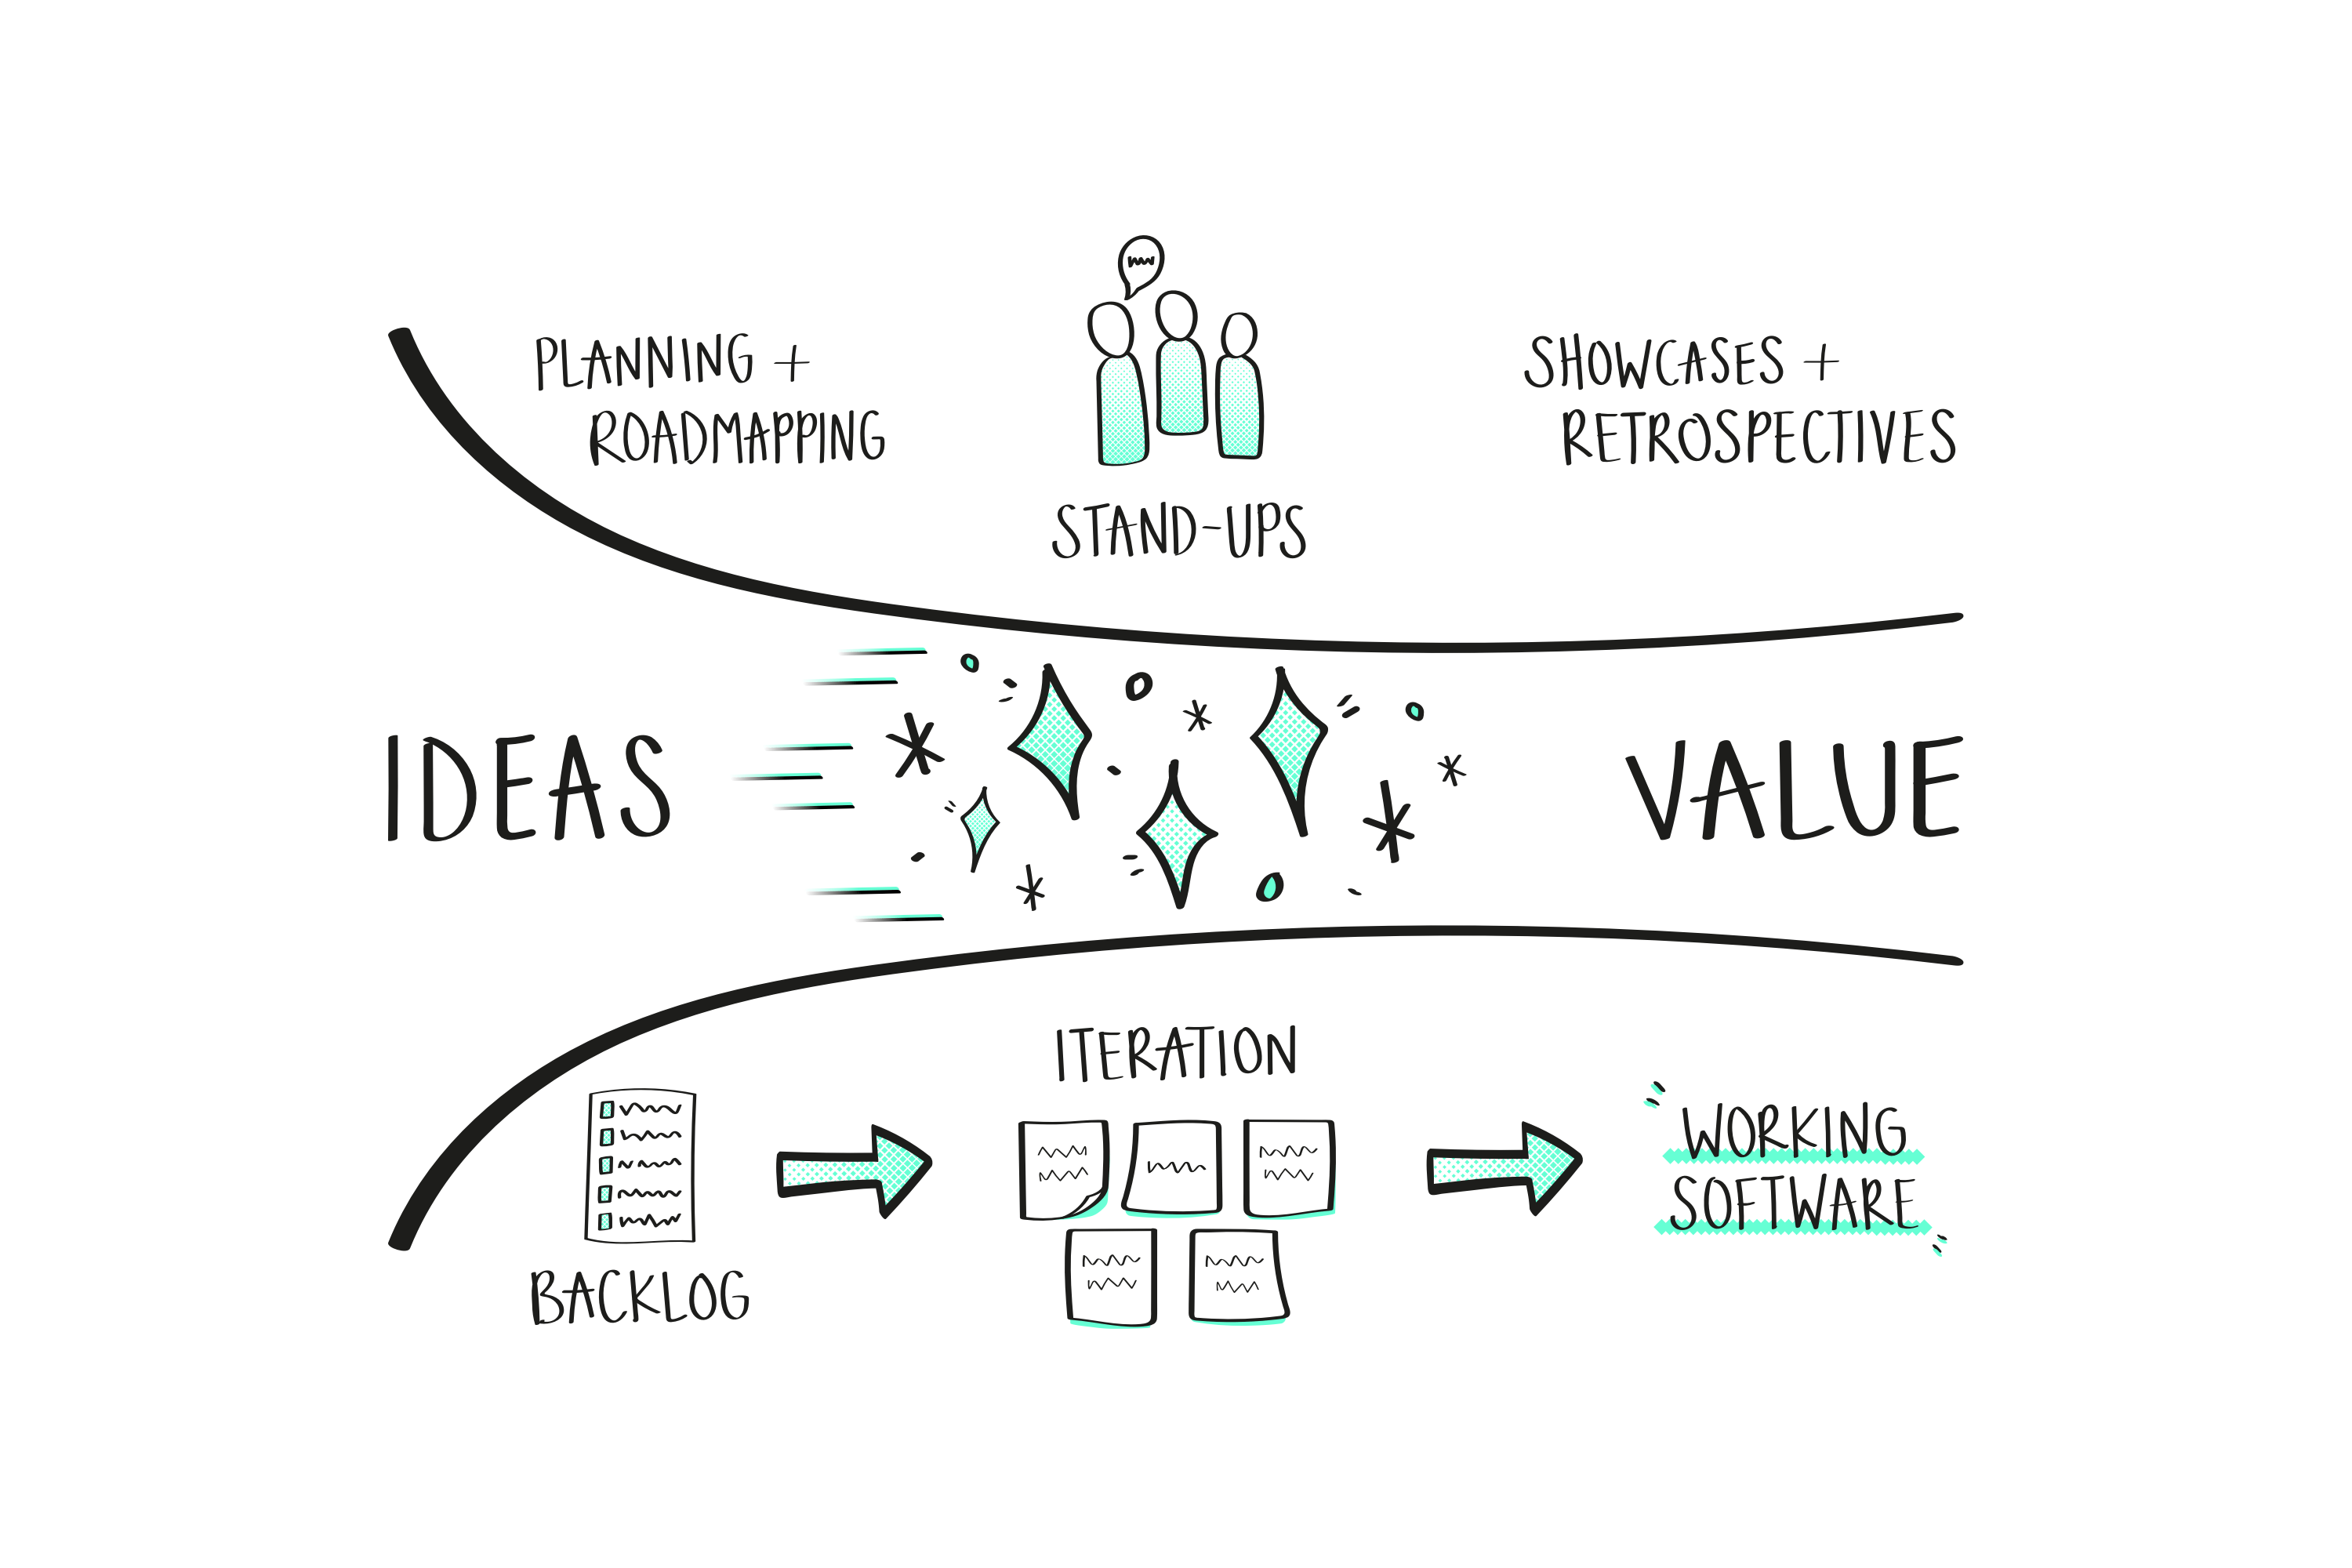 PLANNING +
ROADMAPPING
STAND-UPS
SHOWCASES +
RETROSPECTIVES
IDEAS
VALUE
BACKLOG
ITERATION
WORKING
SOFTWARE